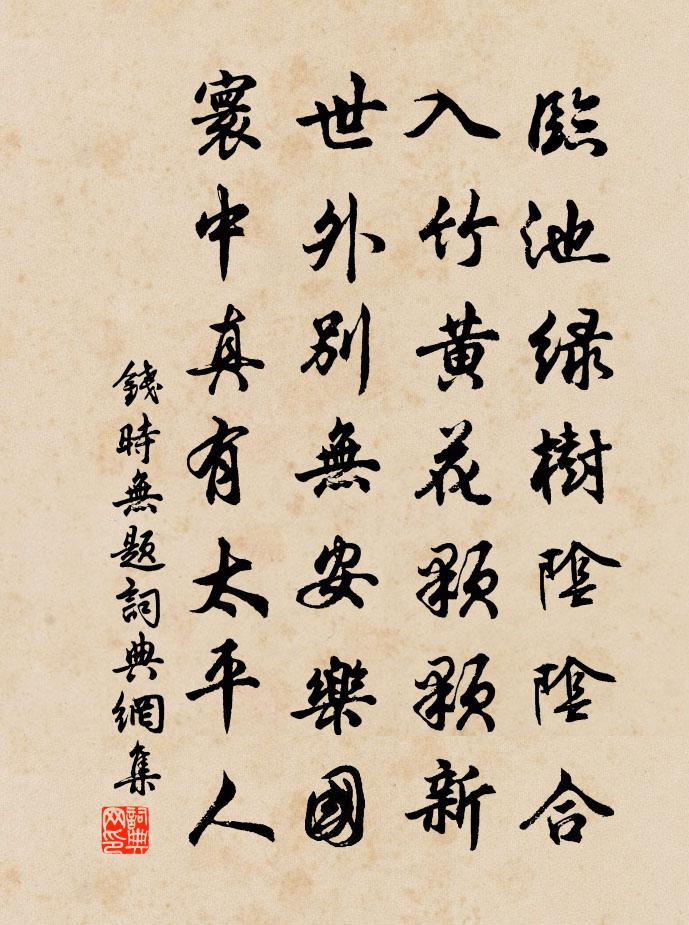 臨池綠樹陰陰合
入竹黃花顆顆新
世外別無安樂國
寰中真有太平人
錢時無題詞典網集
詞典网印